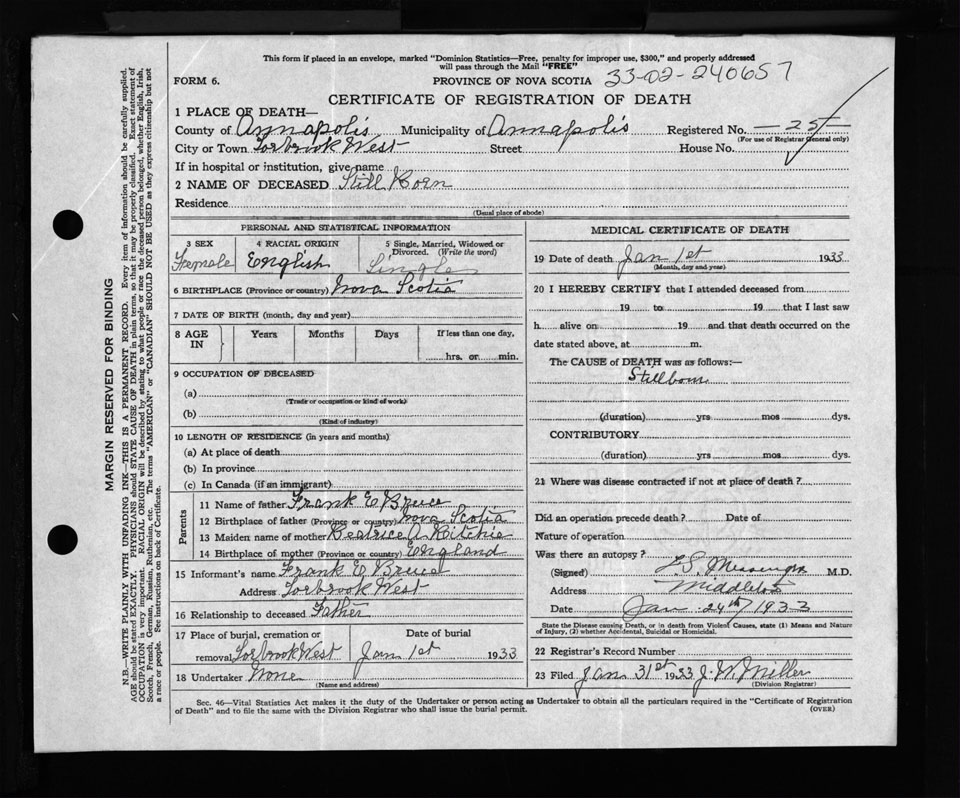 This form if placed in an envelope, marked "Dominion Statistics—Free, penalty for improper use, $300," and properly addressed
will pass through the Mail "FREE"
FORM 6. PROVINCE OF NOVA SCOTIA 33-02-240657
CERTIFICATE OF REGISTRATION OF DEATH
1 PLACE OF DEATH—
County of Annapolis Municipality of Annapolis Registered No. 25
(For use of Registrar General only)
City or Town Torbrook West Street House No.
If in hospital or institution, give name
2 NAME OF DECEASED Still Born
Residence
(Usual place of abode)
PERSONAL AND STATISTICAL INFORMATION
3 SEX 4 RACIAL ORIGIN 5 Single, Married, Widowed or
Divorced. (Write the word)
Female English Single
6 BIRTHPLACE (Province or country) Nova Scotia
7 DATE OF BIRTH (month, day and year)
8 AGE IN Years Months Days If less than one day,
hrs. or min.
9 OCCUPATION OF DECEASED
(a)
(Trade or occupation or kind of work)
(b)
(Kind of industry)
10 LENGTH OF RESIDENCE (in years and months)
(a) At place of death
(b) In province
(c) In Canada (if an immigrant)
Parents
11 Name of father Frank E Bruce
12 Birthplace of father (Province or country) Nova Scotia
13 Maiden name of mother Beatrice A Ritchie
14 Birthplace of mother (Province or country) England
15 Informant's name Frank E Bruce
Address Torbrook West
16 Relationship to deceased Father
17 Place of burial, cremation or Date of burial
removal Torbrook West Jan 1st 1933
18 Undertaker None
(Name and address)
MEDICAL CERTIFICATE OF DEATH
19 Date of death Jan 1st 1933
(Month, day and year)
20 I HEREBY CERTIFY that I attended deceased from
19 to 19 that I last saw
h alive on 19 and that death occurred on the
date stated above, at m.
The CAUSE of DEATH was as follows:—
Stillborn
(duration) yrs mos dys.
CONTRIBUTORY
(duration) yrs mos dys.
21 Where was disease contracted if not at place of death?
Did an operation precede death? Date of
Nature of operation
Was there an autopsy?
(Signed) L.S. Messenger M.D.
Address Middleton
Date Jan 24th 1933
State the Disease causing Death, or in death from Violent Causes, state (1) Means and Nature
of Injury, (2) whether Accidental, Suicidal or Homicidal.
22 Registrar's Record Number
23 Filed Jan 31st 1933 J. W. Miller
(Division Registrar)
Sec. 46—Vital Statistics Act makes it the duty of the Undertaker or person acting as Undertaker to obtain all the particulars required in the "Certificate of Registration
of Death" and to file the same with the Division Registrar who shall issue the burial permit. (OVER)
MARGIN RESERVED FOR BINDING
N.B.—WRITE PLAINLY WITH UNFADING INK—THIS IS A PERMANENT RECORD. Every item of information should be carefully supplied.
AGE should be stated EXACTLY. PHYSICIANS should STATE CAUSE OF DEATH in plain terms, so that it may be properly classified. Exact statement of
OCCUPATION is very important. RACIAL ORIGIN will be described by stating to what people or race the deceased person belonged, whether English, Irish,
Scotch, French, German, Russian, Ruthenian, etc. The terms "AMERICAN" or "CANADIAN" SHOULD NOT BE USED as they express citizenship but not
a race or people. See instructions on back of Certificate.